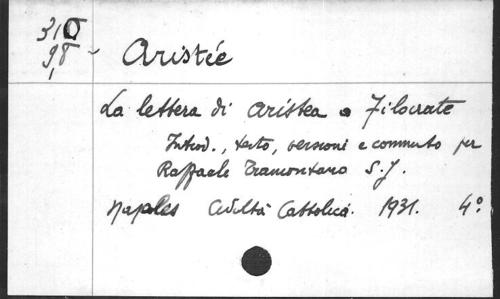 310
9,8 - Aristée
La lettera di Aristea a Filocrate
Introd., testo, versioni e commento per
Raffaele Tramontano S.J.
Naples Civiltà Cattolica. 1931. 4°.